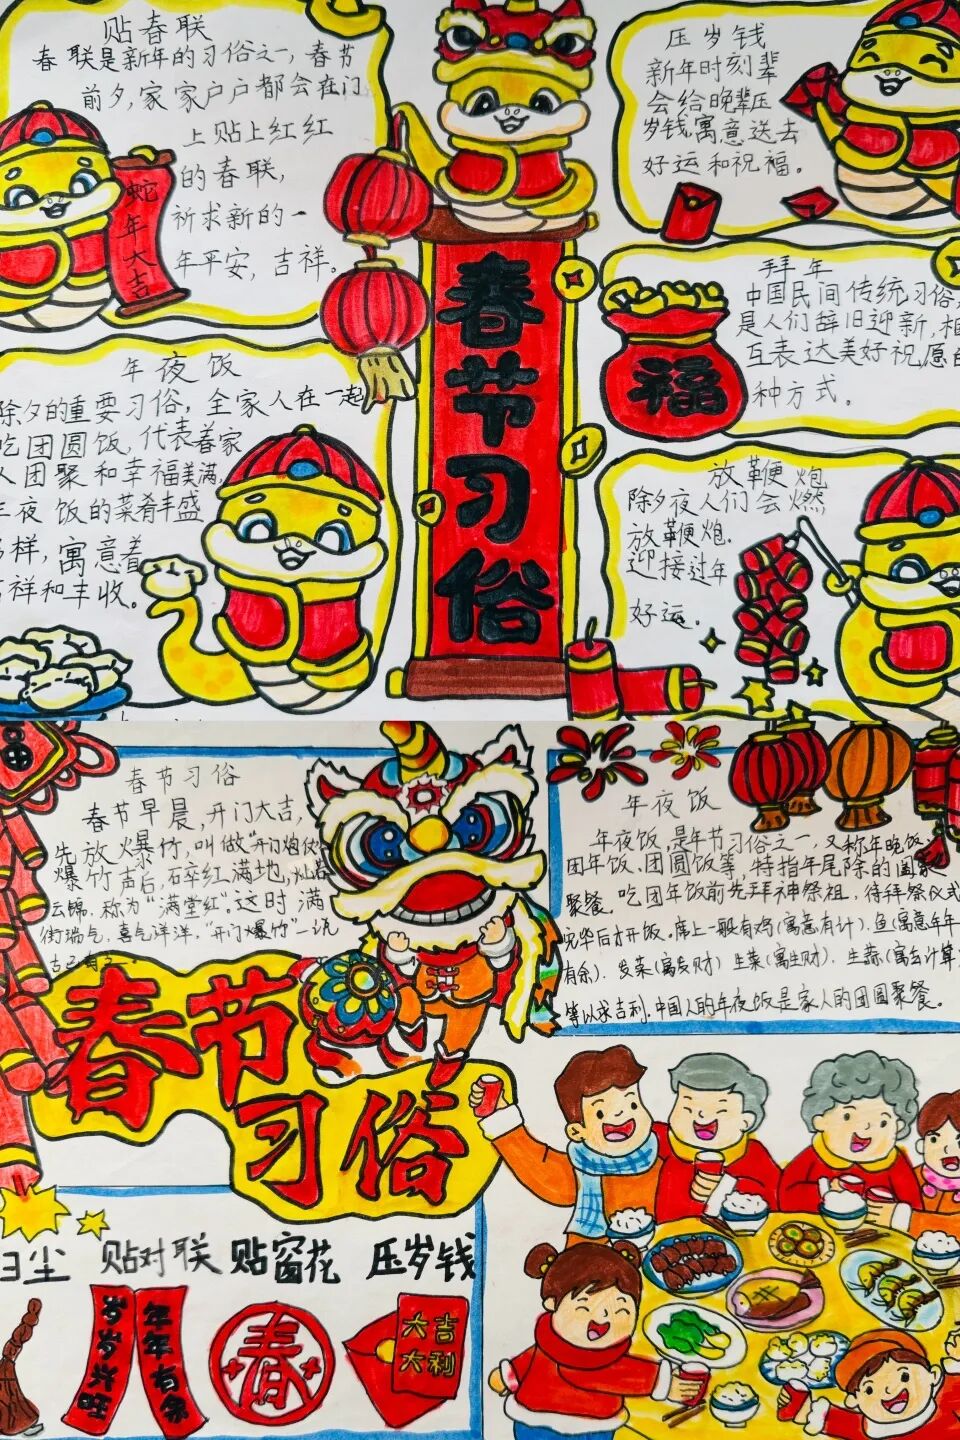 贴春联
春联是新年的习俗之一,春节
前夕,家家户户都会在门
上贴上红红
的春联,
祈求新的一
年平安,吉祥。
蛇年大吉
春节习俗
压岁钱
新年时刻辈
会给晚辈压
岁钱寓意送去
好运和祝福。
拜年
中国民间传统习俗,
是人们辞旧迎新,相
互表达美好祝愿的
种方式。
福
年夜饭
除夕的重要习俗,全家人在一起
吃团圆饭,代表着家
人团聚和幸福美满,
年夜饭的菜肴丰盛
多样,寓意着
吉祥和丰收。
放鞭炮
除夕夜人们会燃
放鞭炮.
迎接过年
好运。
春节习俗
春节早晨,开门大吉,
先放爆竹,叫做"开门炮仗
爆竹声后,碎红满地,灿若
云锦,称为"满堂红"。这时满
街瑞气,喜气洋洋,"开门爆竹"一说
古已有之。
年夜饭
年夜饭,是年节习俗之一,又称年晚饭、
团年饭、团圆饭等,特指年尾除的
聚餐。吃团年饭前先拜神祭祖,待拜祭仪式
完毕后才开饭。席上一般有鸡(寓意有计)、鱼(寓意年年
有余)、发菜(寓发财)生菜(寓生财)、生蒜(寓会计算)
等以求吉利.中国人的年夜饭是家人的团圆聚餐。
春节
习俗
扫尘 贴对联 贴窗花 压岁钱
岁岁兴旺
年年有余
春
大吉
大利